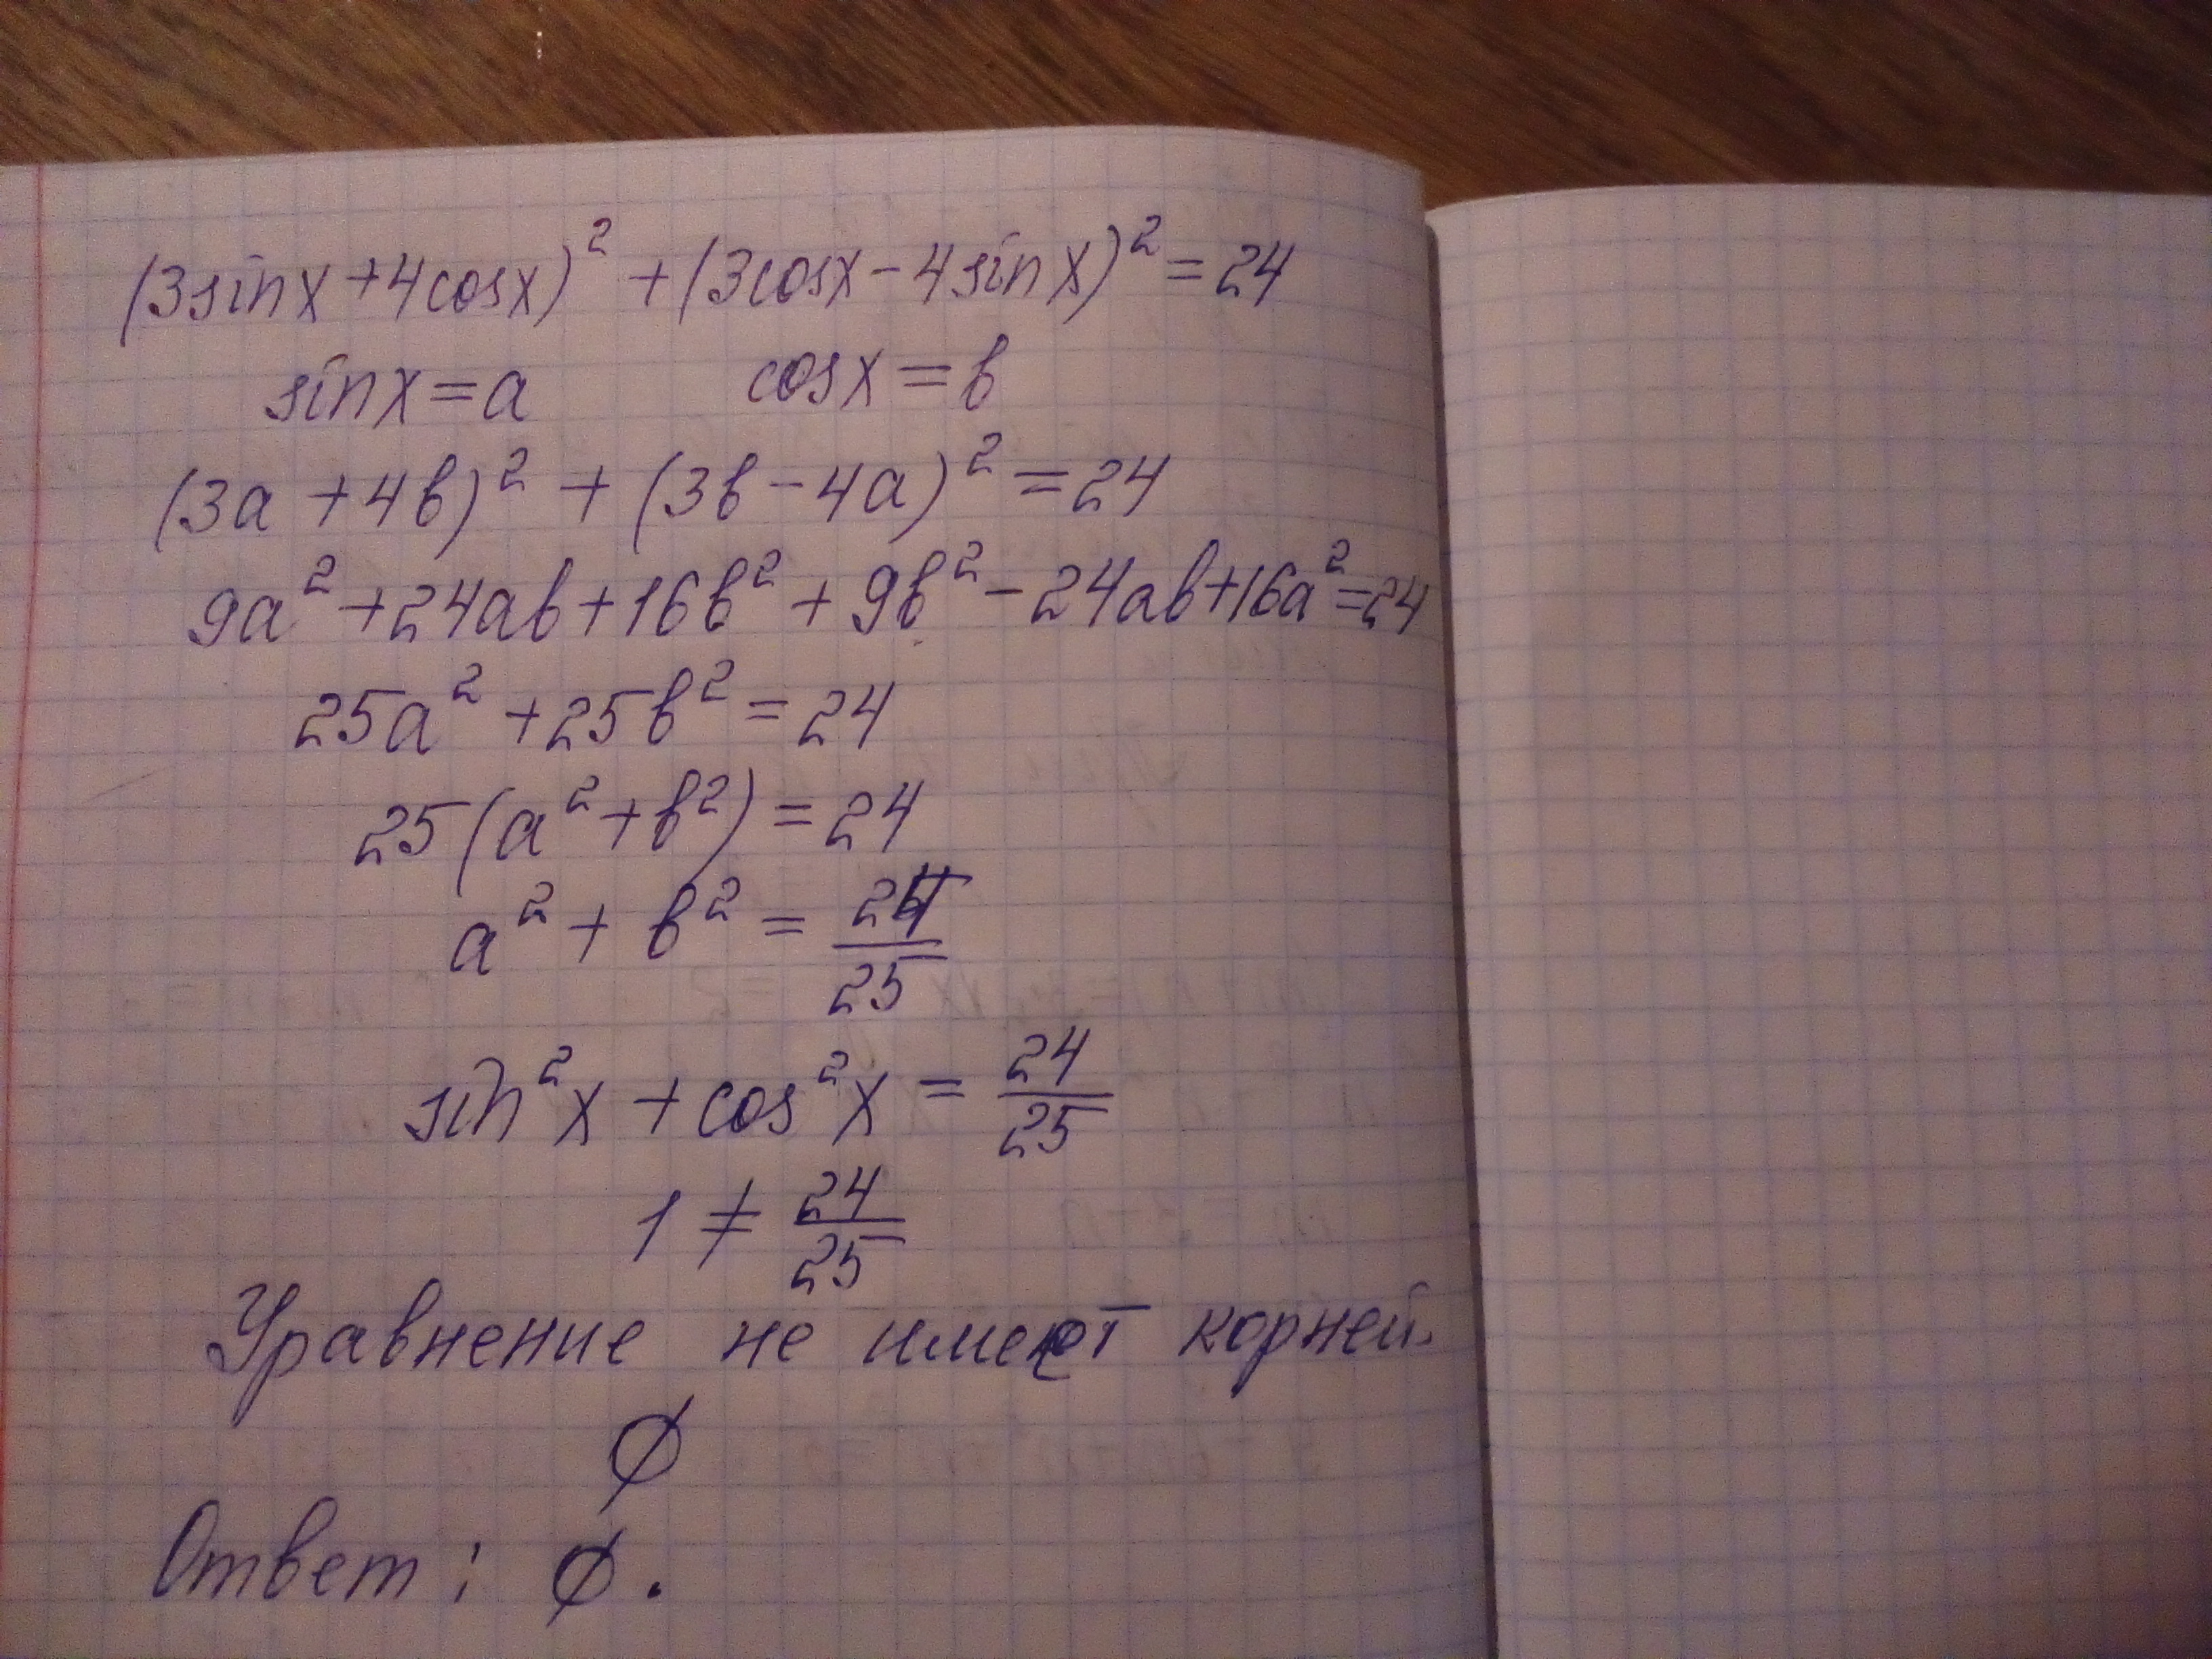 (3sinx+4cosx)² + (3cosx-4sinx)² = 24
sinx = a cosx = b
(3a + 4b)² + (3b - 4a)² = 24
9a² + 24ab + 16b² + 9b² - 24ab + 16a² = 24
25a² + 25b² = 24
25(a² + b²) = 24
a² + b² = 24/25
sin²x + cos²x = 24/25
1 ≠ 24/25
Уравнение не имеет корней.
∅
Ответ: ∅.